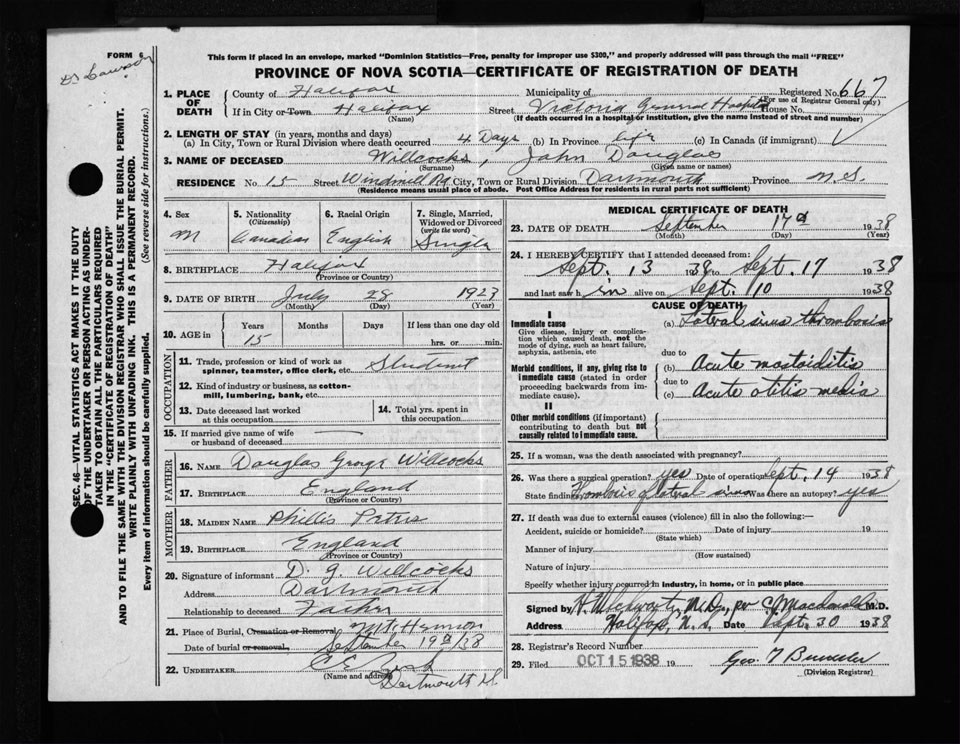 FORM 6
Dr Lawson
This form if placed in an envelope, marked "Dominion Statistics—Free, penalty for improper use $300," and properly addressed will pass through the mail "FREE"
PROVINCE OF NOVA SCOTIA—CERTIFICATE OF REGISTRATION OF DEATH
1. PLACE OF DEATH County of Halifax Municipality of Registered No. 667
(For use of Registrar General only)
If in City or Town Halifax Street Victoria General Hospital House No.
(Name) (If death occurred in a hospital or institution, give the name instead of street and number)
2. LENGTH OF STAY (in years, months and days)
(a) In City, Town or Rural Division where death occurred 4 Days (b) In Province life (c) In Canada (if immigrant)
3. NAME OF DECEASED Willcocks, John Douglas
(Surname) (Given name or names)
RESIDENCE No 15 Street Windmill Rd City, Town or Rural Division Dartmouth Province N.S.
(Residence means usual place of abode. Post Office Address for residents in rural parts not sufficient)
SEC. 46—VITAL STATISTICS ACT MAKES IT THE DUTY
OF THE UNDERTAKER OR PERSON ACTING AS UNDER-
TAKER TO OBTAIN ALL THE PARTICULARS REQUIRED
IN THE "CERTIFICATE OF REGISTRATION OF DEATH"
AND TO FILE THE SAME WITH THE DIVISION REGISTRAR WHO SHALL ISSUE THE BURIAL PERMIT.
WRITE PLAINLY WITH UNFADING INK. THIS IS A PERMANENT RECORD.
Every item of information should be carefully supplied. (See reverse side for instructions.)
4. Sex 5. Nationality (Citizenship) 6. Racial Origin 7. Single, Married, Widowed or Divorced (write the word)
M Canadian English Single
8. BIRTHPLACE Halifax
(Province or Country)
9. DATE OF BIRTH July 28 1923
(Month) (Day) (Year)
10. AGE in Years Months Days If less than one day old
15 hrs. or min.
OCCUPATION
11. Trade, profession or kind of work as
spinner, teamster, office clerk, etc. Student
12. Kind of industry or business, as cotton-
mill, lumbering, bank, etc.
13. Date deceased last worked
at this occupation
14. Total yrs. spent in
this occupation
15. If married give name of wife
or husband of deceased
FATHER
16. NAME Douglas George Willcocks
17. BIRTHPLACE England
(Province or Country)
MOTHER
18. MAIDEN NAME Phillis Peters
19. BIRTHPLACE England
(Province or Country)
20. Signature of informant D. G. Willcocks
Address Dartmouth
Relationship to deceased Father
21. Place of Burial, Cremation or Removal Mt. Hermon
Date of burial or removal September 19th/38
22. UNDERTAKER
(Name and address) Dartmouth
MEDICAL CERTIFICATE OF DEATH
23. DATE OF DEATH September 17th 1938
(Month) (Day) (Year)
24. I HEREBY CERTIFY that I attended deceased from:
Sept. 13 1938 to Sept. 17 1938
and last saw h im alive on Sept. 10 1938
CAUSE OF DEATH
I
Immediate cause (a) Lateral sinus thrombosis
Give disease, injury or complica-
tion which caused death, not the
mode of dying, such as heart failure,
asphyxia, asthenia, etc
due to
Morbid conditions, if any, giving rise to (b) Acute mastoiditis
immediate cause (stated in order
proceeding backwards from im-
mediate cause).
due to
(c) Acute otitis media
II
Other morbid conditions (if important)
contributing to death but not
causally related to immediate cause.
25. If a woman, was the death associated with pregnancy?
26. Was there a surgical operation? yes Date of operation Sept. 14 1938
State finding Thrombosis of lateral sinus Was there an autopsy? yes
27. If death was due to external causes (violence) fill in also the following:—
Accident, suicide or homicide? Date of injury 19
(State which)
Manner of injury
(How sustained)
Nature of injury
Specify whether injury occurred in industry, in home, or in public place
Signed by M.D., per C Macdonald M.D.
Address Halifax, N.S. Date Sept. 30 1938
28. Registrar's Record Number
29. Filed OCT 15 1938 19
(Division Registrar)